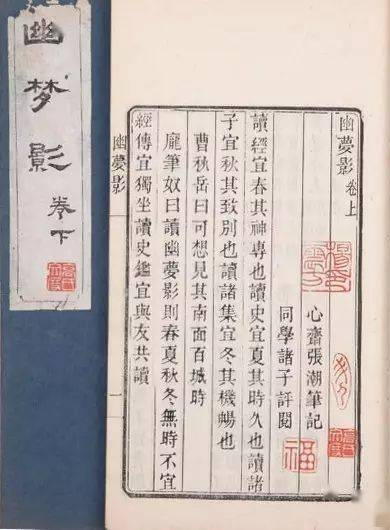 幽梦影 卷下
幽夢影卷上
心齋張潮筆記
同學諸子評閱
讀經宜春其神專也讀史宜夏其時久也讀諸
子宜秋其致別也讀諸集宜冬其機暢也
曹秋岳曰可想見其南面百城時
龐筆奴曰讀幽夢影則春夏秋冬無時不宜
經傳宜獨坐讀史鑑宜與友共讀
幽夢影
福